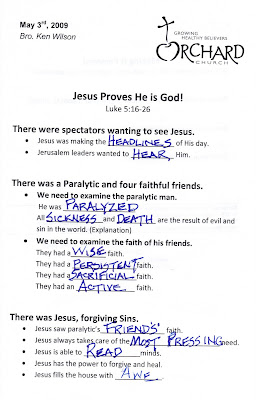 May 3rd, 2009
Bro. Ken Wilson
GROWING
HEALTHY BELIEVERS
ORCHARD
CHURCH
Jesus Proves He is God!
Luke 5:16-26
There were spectators wanting to see Jesus.
• Jesus was making the HEADLINES of His day.
• Jerusalem leaders wanted to HEAR Him.
There was a Paralytic and four faithful friends.
• We need to examine the paralytic man.
He was PARALYZED
All SICKNESS and DEATH are the result of evil and
sin in the world. (Explanation)
• We need to examine the faith of his friends.
They had a WISE faith.
They had a PERSISTENT faith.
They had a SACRIFICIAL faith.
They had an ACTIVE faith.
There was Jesus, forgiving Sins.
• Jesus saw paralytic's FRIENDS' faith.
• Jesus always takes care of the MOST PRESSING need.
• Jesus is able to READ minds.
• Jesus has the power to forgive and heal.
• Jesus fills the house with AWE